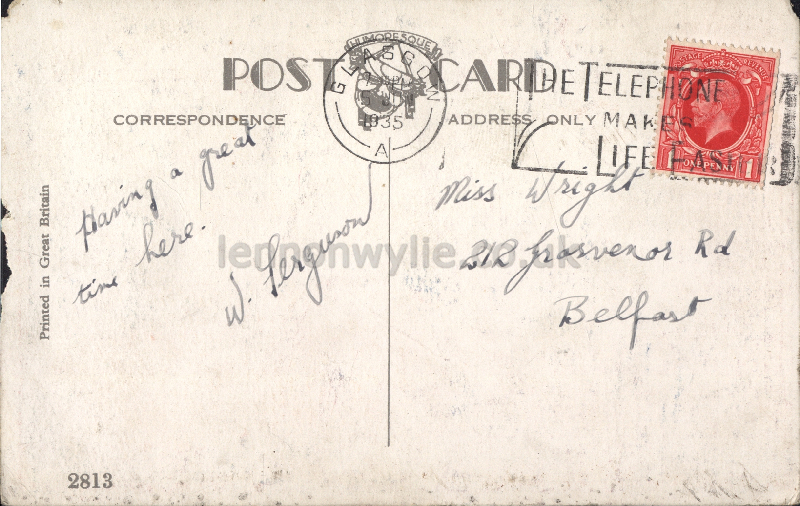 HUMORESQUE
POST CARD
GLASGOW
1935
A
THE TELEPHONE
MAKES
LIFE EASIER
POSTAGE REVENUE
ONE PENNY 1
CORRESPONDENCE
ADDRESS ONLY
Having a great
time here.
W. Ferguson
Miss Wright
212 Grosvenor Rd
Belfast
lennonwylie.co.uk
Printed in Great Britain
2813